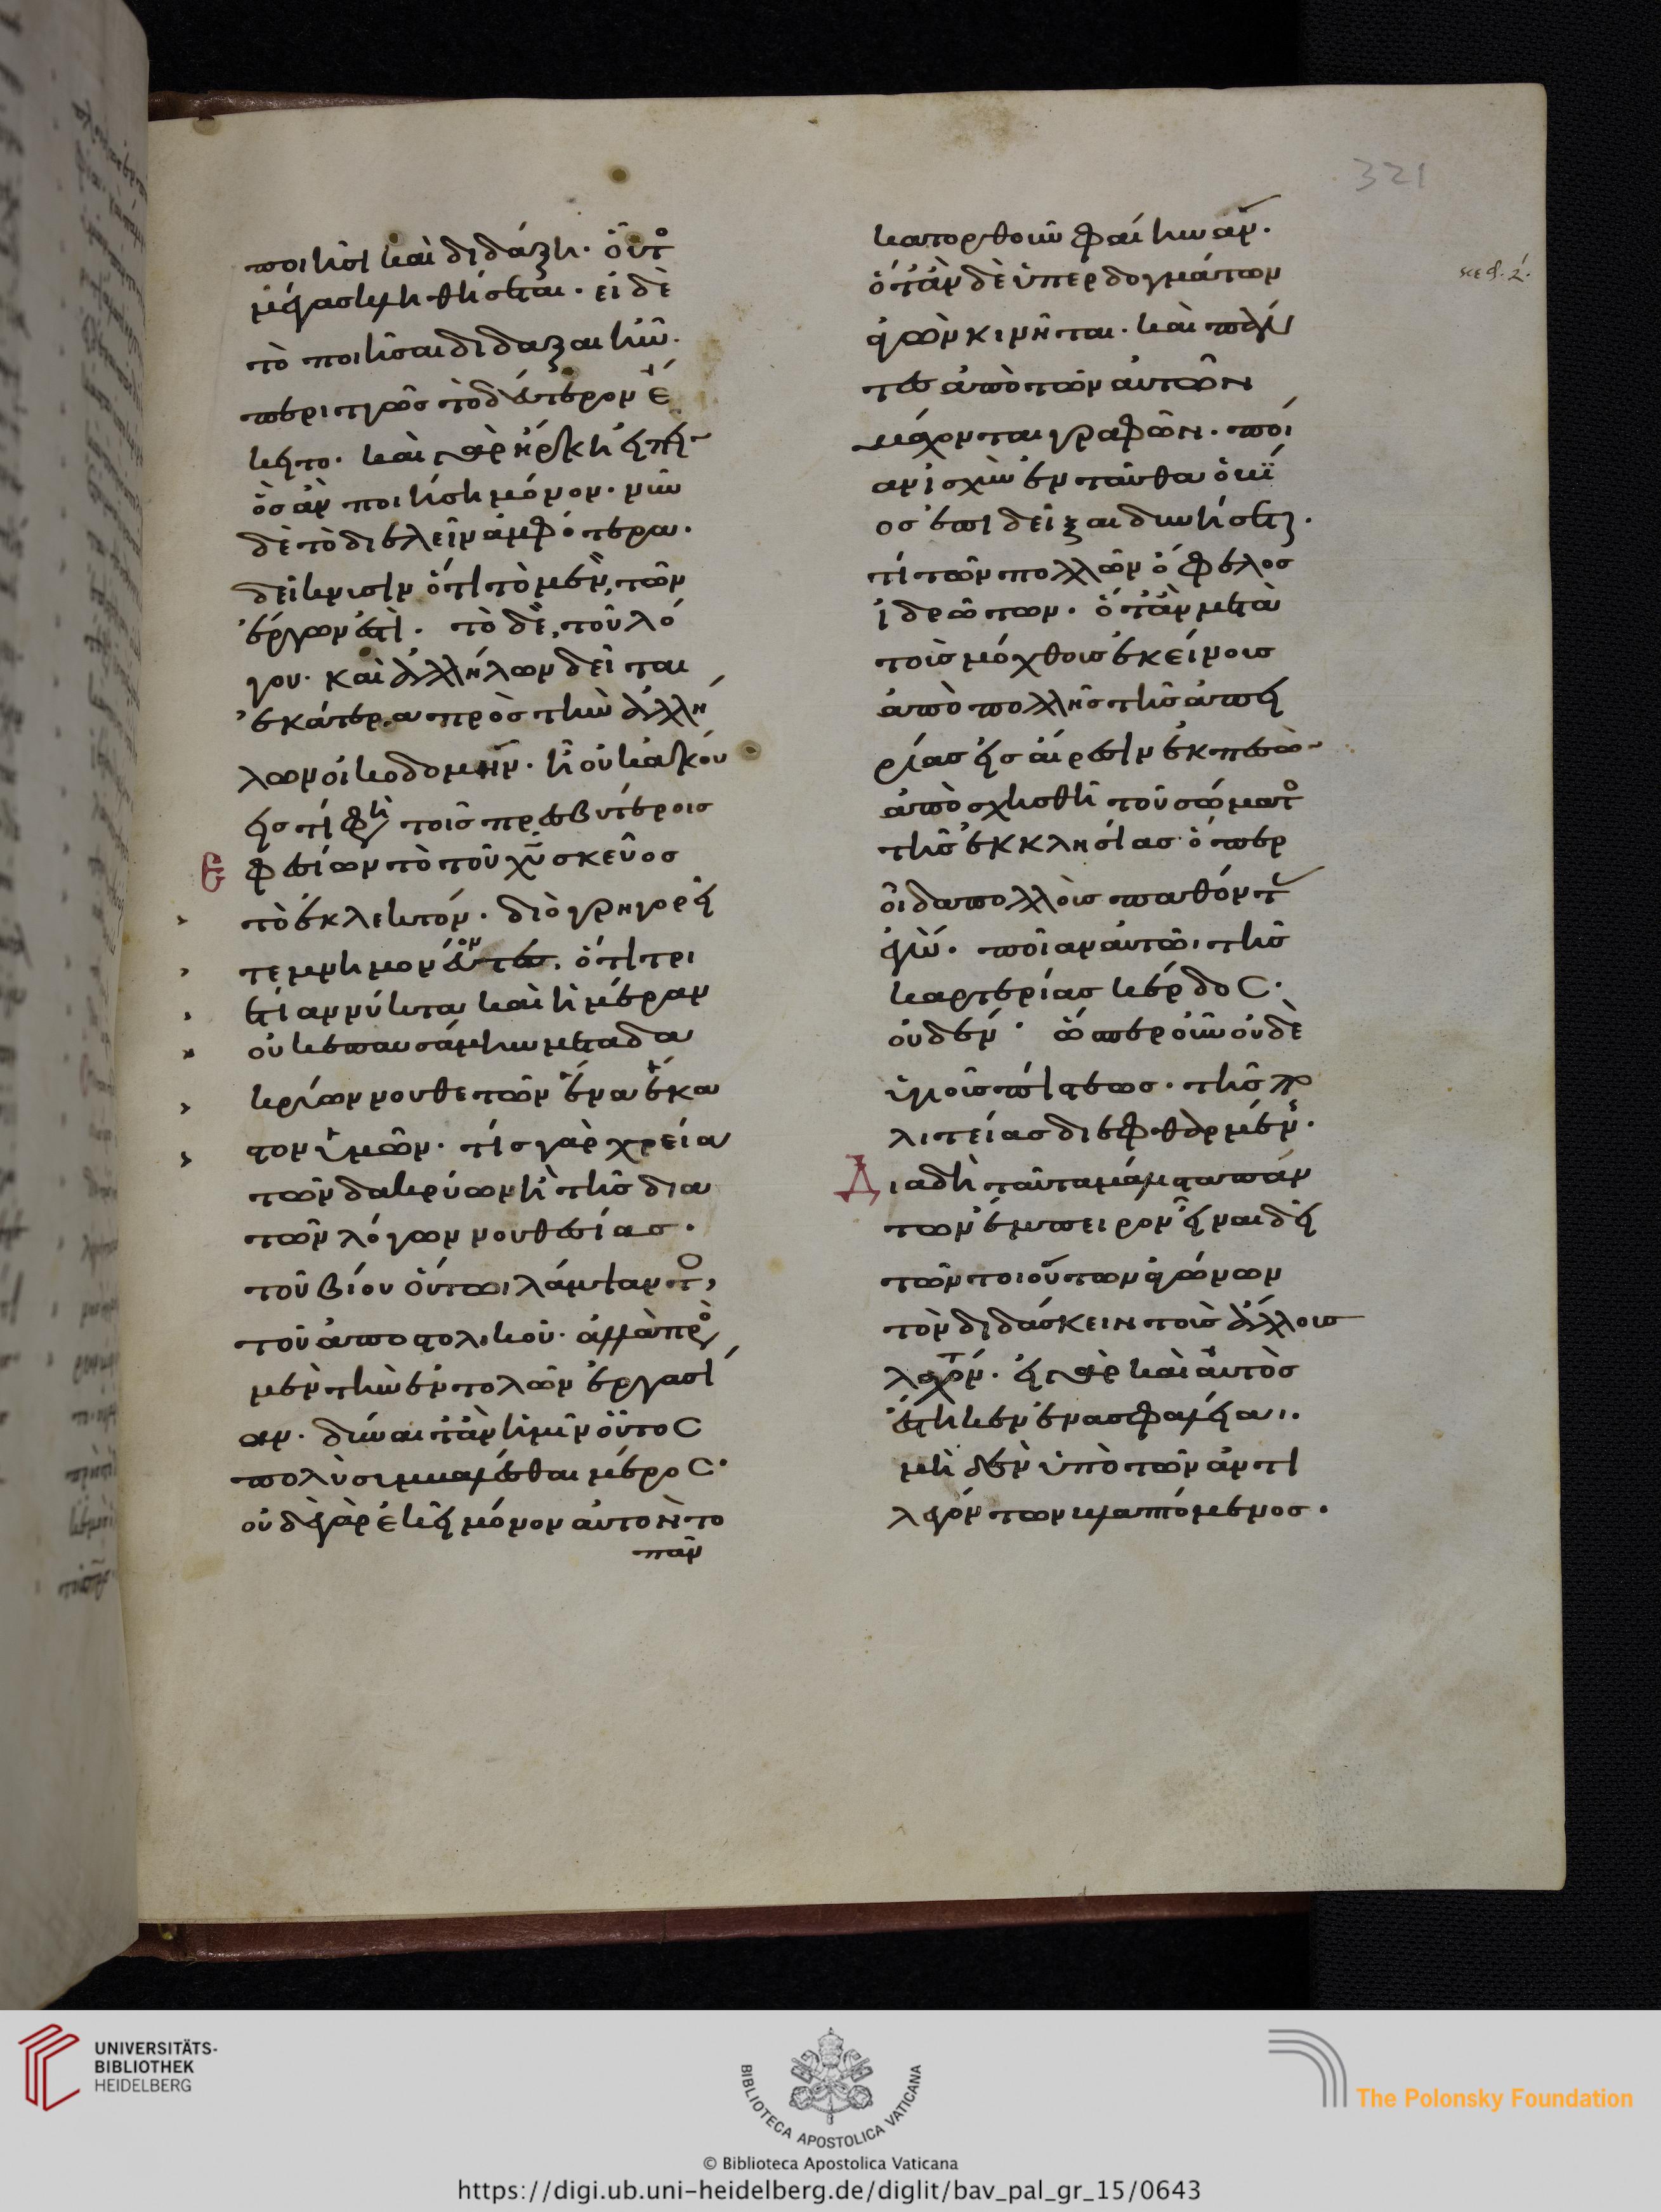 ποιήσῃ καὶ διδάξῃ· οὗτος
μέγας κληθήσεται· εἰ δὲ
τὸ ποιῆσαι διδάξαι ἦν·
περιττῶς τὸ δεύτερον ἔ
κειτο· καὶ γὰρ ἤρκει εἰπεῖν
ὃς ἂν ποιήσῃ μόνον· νῦν
δὲ τὸ διελεῖν ἀμφότερα·
δείκνυσιν ὅτι τὸ μὲν, τῶν
ἔργων ἐστί· τὸ δὲ, τοῦ λό
γου· καὶ ἀλλήλων δεῖται
ἑκάτερα πρὸς τὴν ἀλλή
λων οἰκοδομήν· ἢ οὐκ ἀκού
εις τί φησι τοῖς πρεσβυτέροις
Ἐφεσίων τὸ τοῦ χυ σκεῦος
τὸ ἐκλεκτόν· διὸ γρηγορεῖ
τε μνημονεύοντες· ὅτι τρι
ετίαν νύκτα καὶ ἡμέραν
οὐκ ἐπαυσάμην μετὰ δα
κρύων νουθετῶν ἕνα ἕκα
στον ὑμῶν· τίς γὰρ χρεία
τῶν δακρύων ἢ τῆς διὰ
τῶν λόγων νουθεσίας·
τοῦ βίου οὕτωι λάμψαντος,
τοῦ ἀποστολικοῦ· ἀλλὰ πρὸς
μὲν τὴν ἐντολῶν ἐργασί
αν· δύναιτ' ἂν ἡμῖν οὗτος
πολὺ συμβαλέσθαι μέρος·
οὐδὲ γὰρ ἐκεῖ μόνον αὐτὸν τὸ
πᾶν
κατορθοῦν φαίην ἄν·
ὅταν δὲ ὑπὲρ δογμάτων
ἀγὼν κινῆται· καὶ πάν
τες ἀπὸ τῶν αὐτῶν
μάχονται γραφῶν· ποί
αν ἰσχὺν ἐνταῦθα ὁ βί
ος ἐπιδεῖξαι δυνήσεται·
τί τῶν πολλῶν ὄφελος
ἱδρώτων· ὅταν μετὰ
τοὺς μόχθους ἐκείνους
ἀπὸ πολλῆς τῆς ἀπει
ρίας εἰς αἵρεσιν ἐκπεσὼν
ἀποσχισθῇ τοῦ σώματος
τῆς ἐκκλησίας· ὅπερ
οἶδα πολλοὺς παθόντας
ἐγώ· ποῖαν αὐτῶι τῆς
καρτερίας κέρδος·
οὐδέν· ὥσπερ οὖν οὐδὲ
ὑγιοῦς πίστεως· τῆς πο
λιτείας διεφθαρμένης·
Διὰ δὴ ταῦτα μάλιστα πάν
των ἔμπειρον εἶναι δεῖ
τῶν τοιούτων ἀγώνων
τὸν διδάσκειν τοὺς ἄλλους
λαχόντα· εἰ γὰρ καὶ αὐτὸς
ἕστηκεν ἐν ἀσφαλείαι·
μηδὲν ὑπὸ τῶν ἀντι
λεγόντων βλαπτόμενος·
321
UNIVERSITÄTS-
BIBLIOTHEK
HEIDELBERG
BIBLIOTECA APOSTOLICA VATICANA
The Polonsky Foundation
© Biblioteca Apostolica Vaticana
https://digi.ub.uni-heidelberg.de/diglit/bav_pal_gr_15/0643